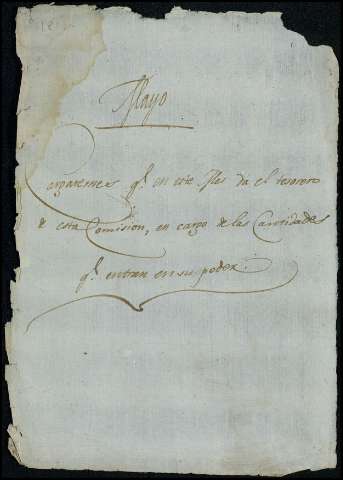 Mayo
Cargaremes qᵉ en este Mes da el tesorero
de esta Comision, en cargo de las Cantidades
qᵉ entran en su poder.